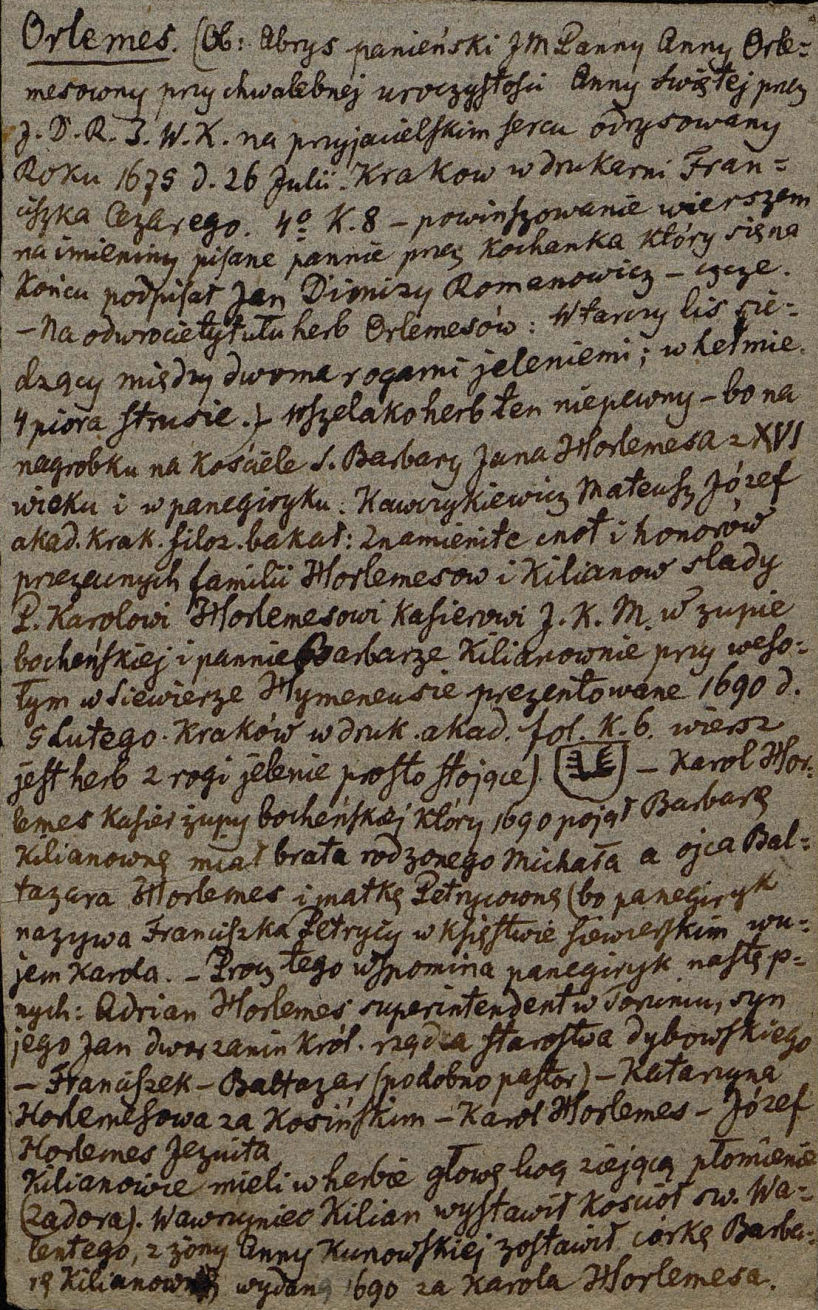 Orlemes. (Ob: Abrys panieński JM Panny Anny Orle=
mesowny przy chwalebnej uroczystości Anny świętej przez
J. D. R. Z. W. K. na przyjacielskim sercu odrysowany
Roku 1675 d. 26 Julii. Krakow w drukarni Fran=
ciszka Cezarego. 4º K. 8 – powinszowanie wierszem
na imieniny pisane pannie przez Kochanka który się na
Końcu podpisał Jan Dionizy Romanowicz –
– Na odwrocie tytułu herb Orlemesów: W tarczy lis sie=
dzący między dwoma rogami jeleniemi; w hełmie
4 pióra strusie.) Wszelako herb ten niepewny – bo na
nagrobku na Kościele S. Barbary Jana Horlemesa z XVI
wieku i w panegiryku: Kawczykiewicz Mateusz Józef
akad. Krak. filoz. bakał: Znamienite cnot i honorów
przezacnych familii Horlemesow i Kilianow slady
P. Karolowi Horlemesowi Kasierowi J. K. M. w zupie
bocheńskiej i pannie Barbarze Kilianownie przy weso=
łym w Siewierze Hymeneusie prezentowane 1690 d.
5 Lutego. Kraków w druk. akad. fol. K. 6. wiersz
jest herb 2 rogi jelenie prosto stojące) – Karol Hor=
lemes Kasier żupy bocheńskiej który 1690 pojął Barbarę
Kilianownę miał brata rodzonego Michała a ojca Bal=
tazara Horlemes i matkę Petrycownę (bo panegiryk
nazywa Franciszka Petrycy w Księstwie siewierskim wu=
jem Karola. – Procz tego wspomina panegiryk następ=
nych: Adrian Horlemes superintendent w Toruniu, syn
jego Jan dworzanin Król. rządca starostwa dybowskiego
– Franciszek – Baltazar (podobno pastor) – Katarzyna
Horlemesowa za Kosińskim – Karol Horlemes – Józef
Horlemes Jezuita
Kilianowie mieli w herbie głowę lwą ziejącą płomienie
(Zadora). Wawrzyniec Kilian wystawił Kościół św. Wa=
lentego, z żony Anny Kunowskiej zostawił córkę Barba=
rę Kilianownę wydaną 1690 za Karola Horlemesa.